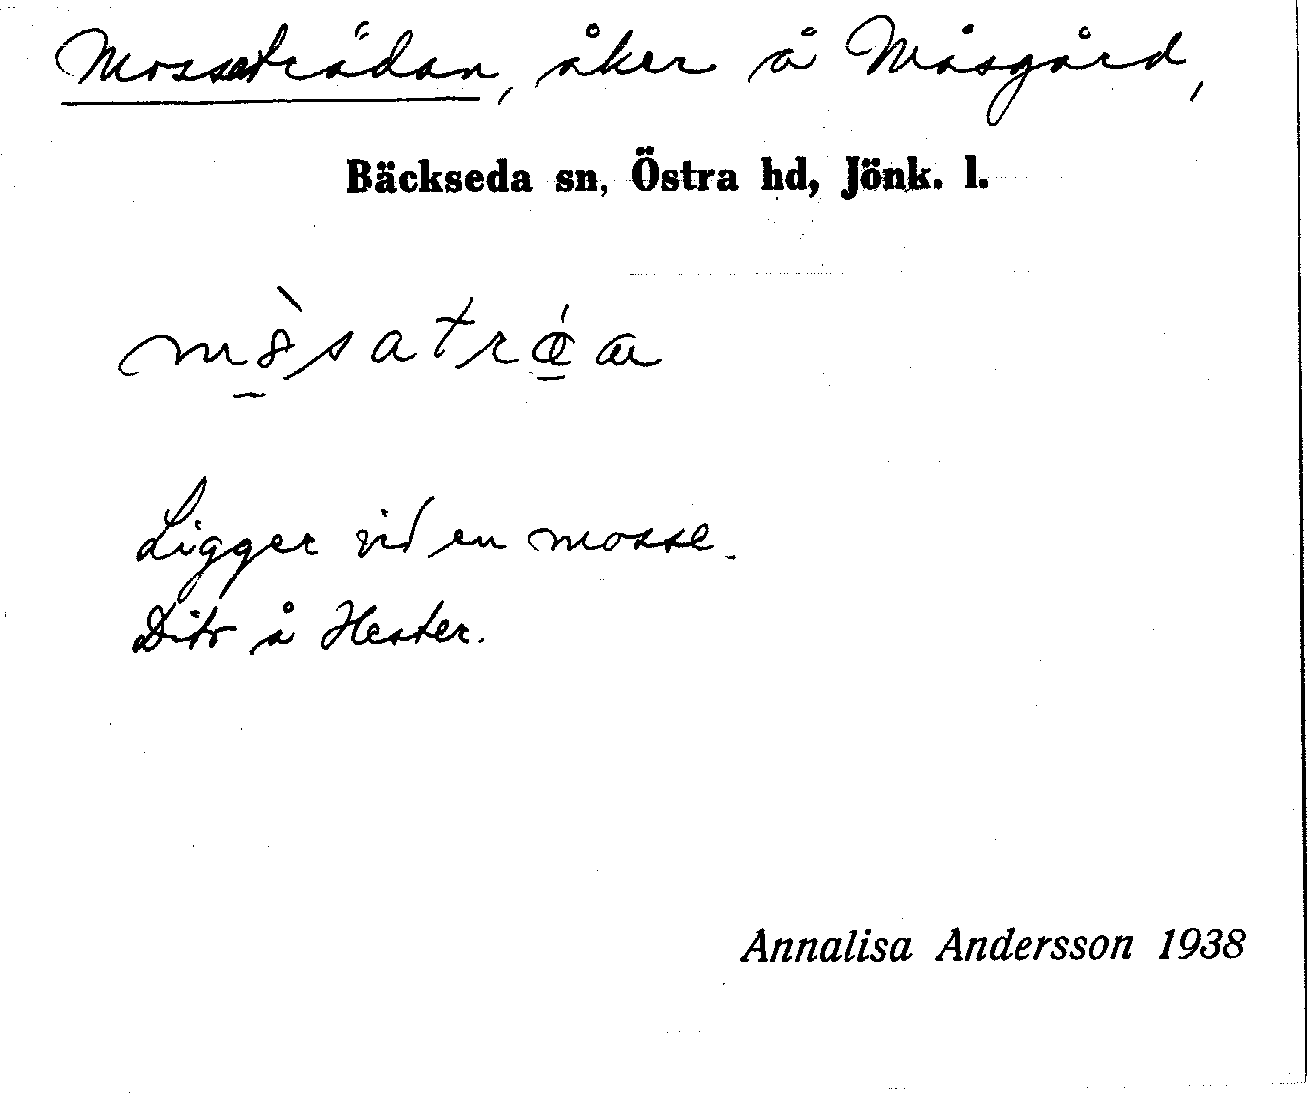 Mossaträdan, åker å Måsgård,
Bäckseda sn, Östra hd, Jönk. l.
Ligger vid en mosse.
Dito å Hester.
Annalisa Andersson 1938